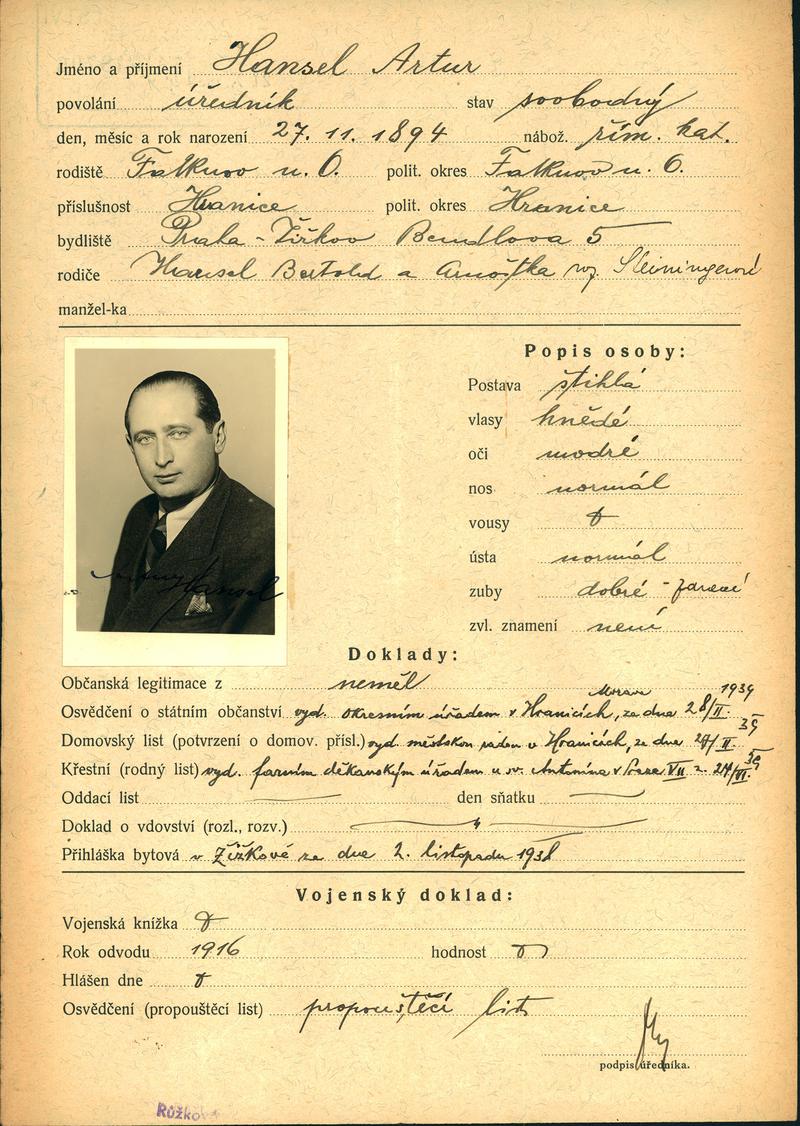 Jméno a příjmení Hansel Artur
povolání úředník stav svobodný
den, měsíc a rok narození 27. 11. 1894 nábož. řím. kat.
rodiště Falknov n. O. polit. okres Falknov n. O.
příslušnost Hranice polit. okres Hranice
bydliště Praha - Žižkov Bendlova 5
rodiče Hansel Bertold a Arnoštka roz.
manžel-ka
Popis osoby:
Postava štíhlá
vlasy hnědé
oči modré
nos normál
vousy
ústa normál
zuby dobré -
zvl. znamení není
Hansel
Doklady:
Občanská legitimace z neměl
Osvědčení o státním občanství vyd. okresním úřadem v Hranicích, Morava ze dne 28/II. 1939
Domovský list (potvrzení o domov. přísl.) vyd. městskou radou v Hranicích, ze dne 27/II. 39
Křestní (rodný list) vyd. farním děkanským úřadem u sv. Antonína v Praze VII z.
Oddací list — den sňatku —
Doklad o vdovství (rozl., rozv.) — " —
Přihláška bytová v Žižkově ze dne 2. listopadu 1938
Vojenský doklad:
Vojenská knížka
Rok odvodu 1916 hodnost
Hlášen dne
Osvědčení (propouštěcí list) propouštěcí list
podpis úředníka.